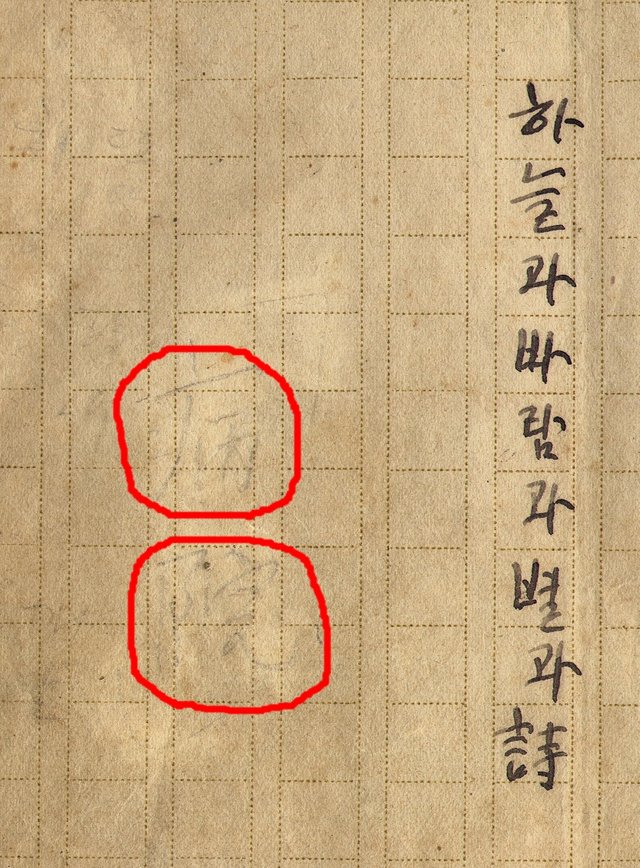 하늘과바람과별과詩
病院